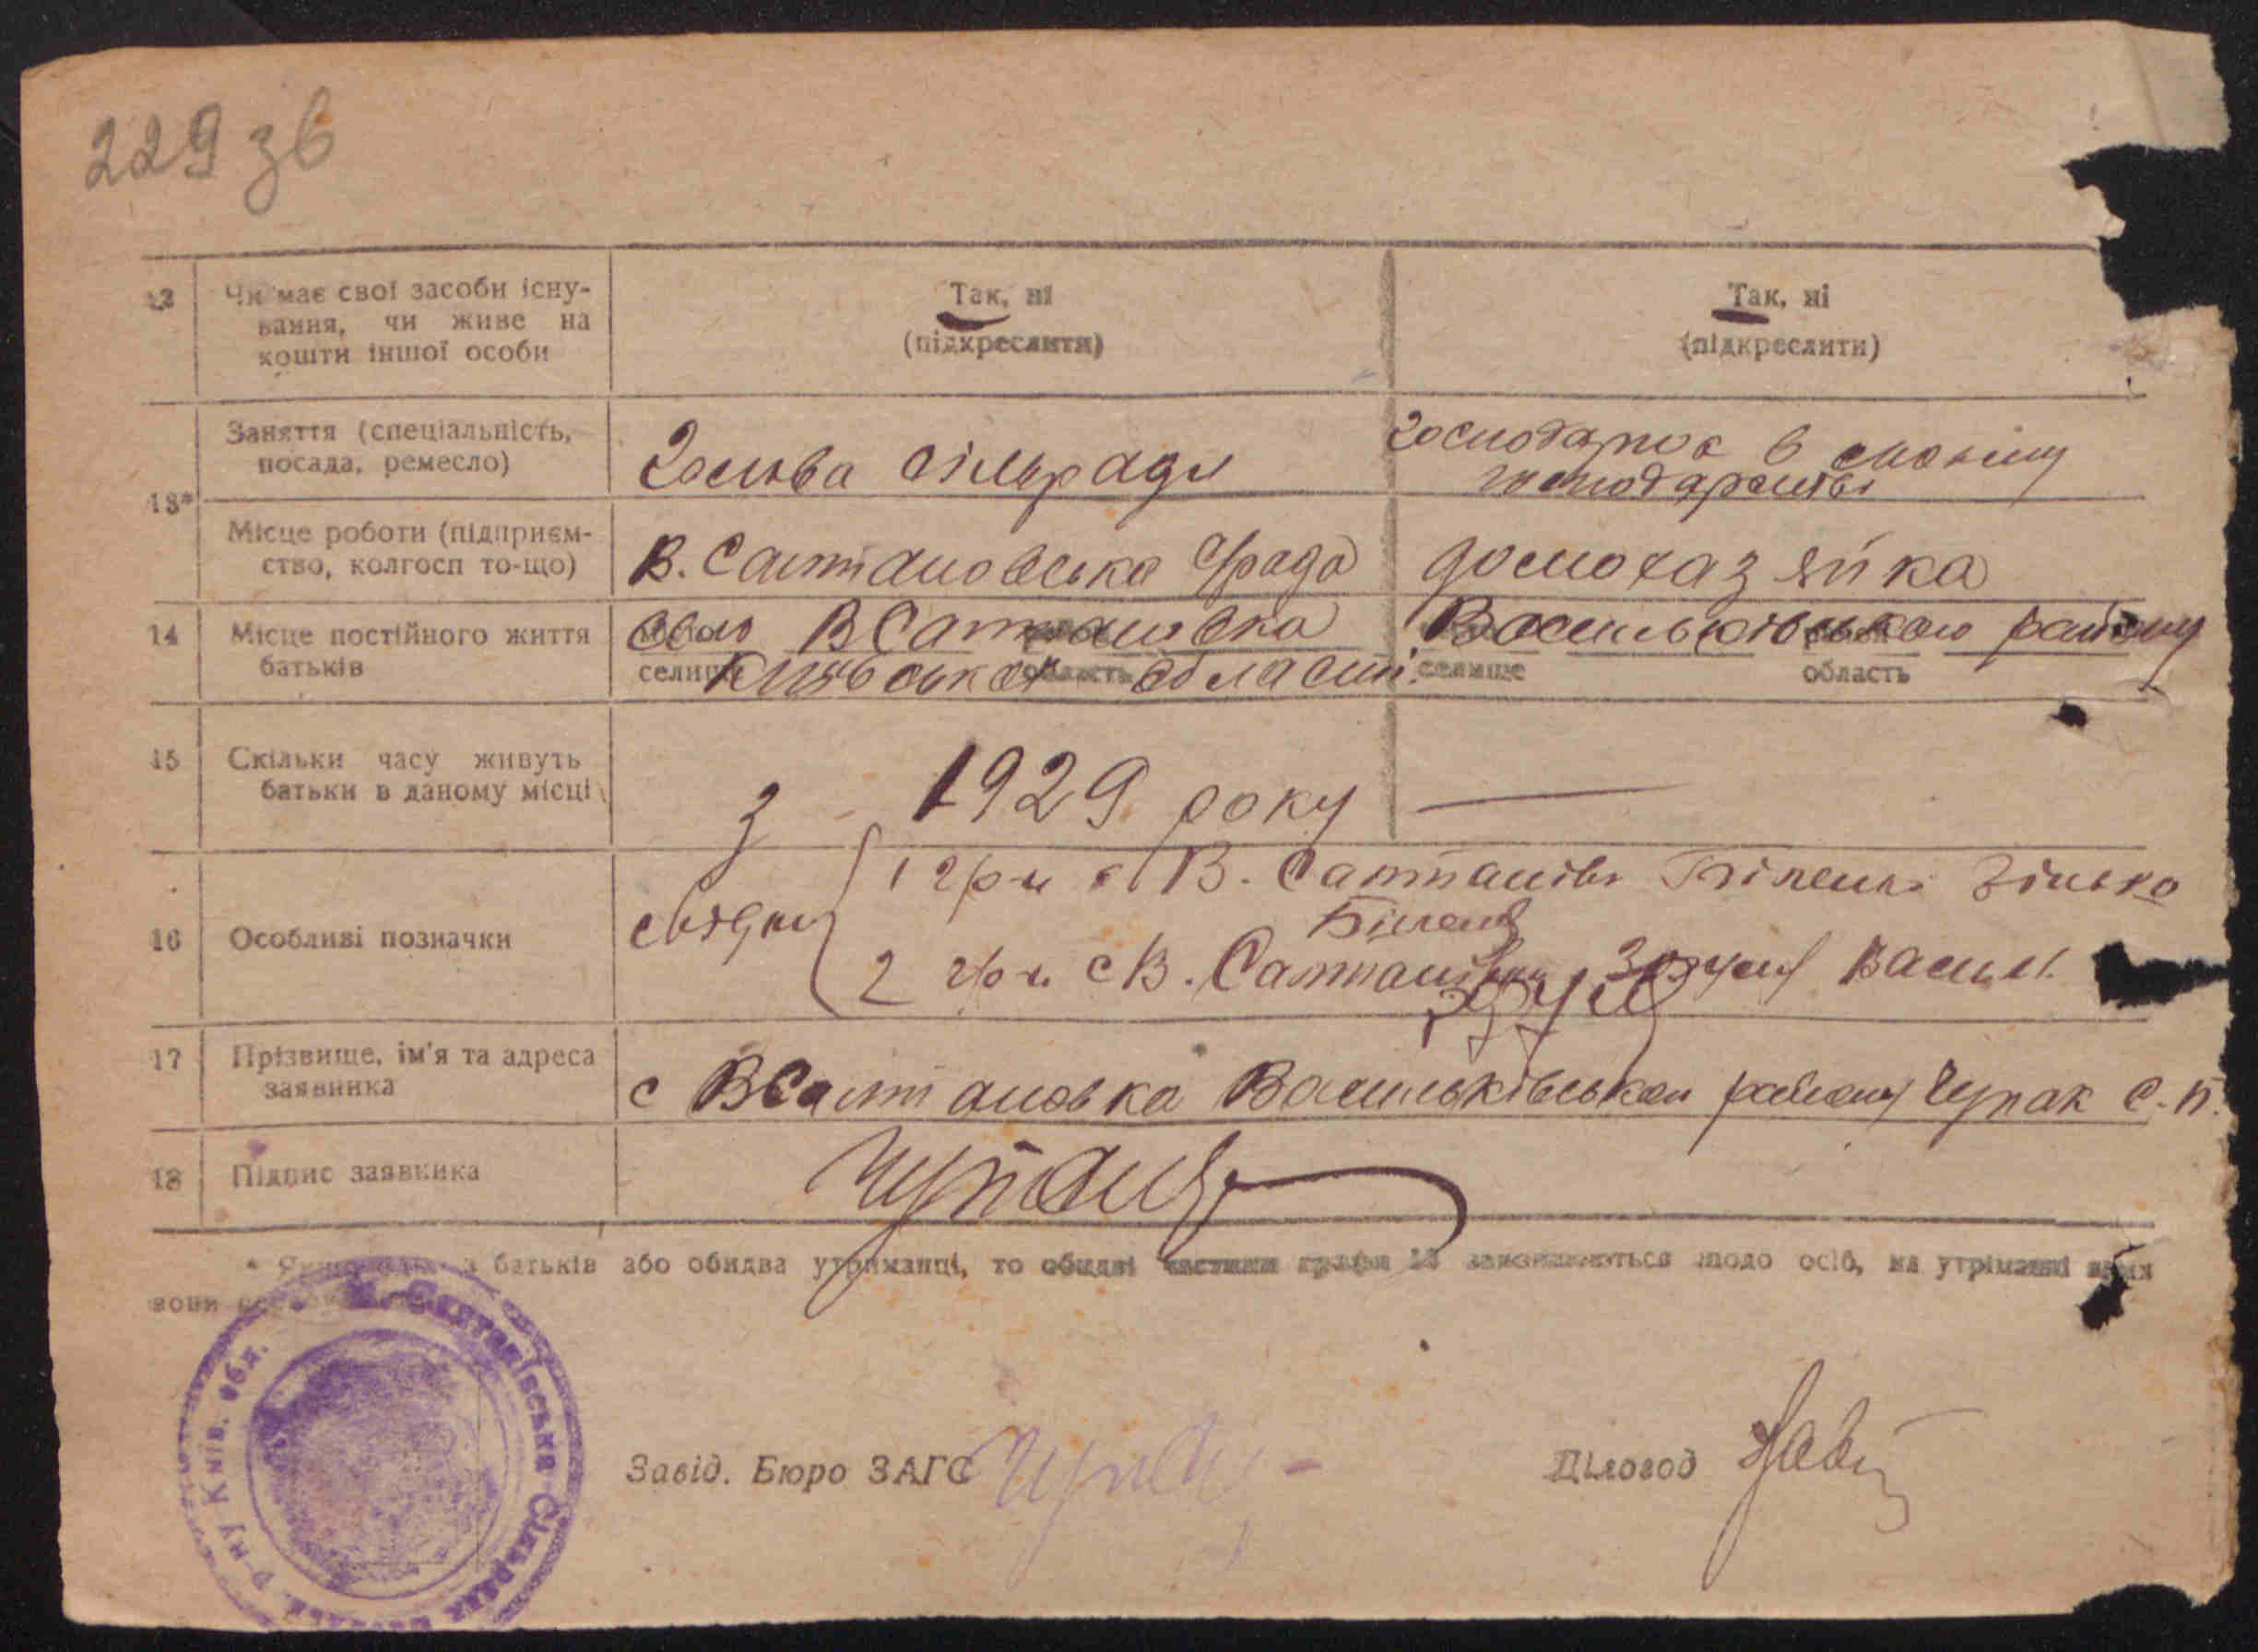 229 зв
13 Чи має свої засоби існу-
вання, чи живе на
кошти іншої особи
Так, ні
(підкреслити)
Так, ні
(підкреслити)
13*
Заняття (спеціальність,
посада, ремесло)
Голова сільради
господарює в своєму
господарстві
Місце роботи (підприєм-
ство, колгосп то-що)
В. Салтановська С/рада
домохазяйка
14 Місце постійного життя
батьків
село В Салтановка Васильківського району
селище Київської області
селище область
15 Скільки часу живуть
батьки в даному місці
з 1929 року —
16 Особливі позначки
свідки
1 гр-н с В. Салтанівк
2 гр-н с В. Салтанівки Василь
17 Прізвище, ім'я та адреса
заявника
с В Салтановка Васильківського району Чупак С. П.
18 Підпис заявника
* батьків або обидва утриманці, то обидві частини графи 13 заповнюються щодо осіб, на утриманні яких
вони
Салтанівська Сільрада
р-ну Київ. обл.
Завід. Бюро ЗАГС
Діловод